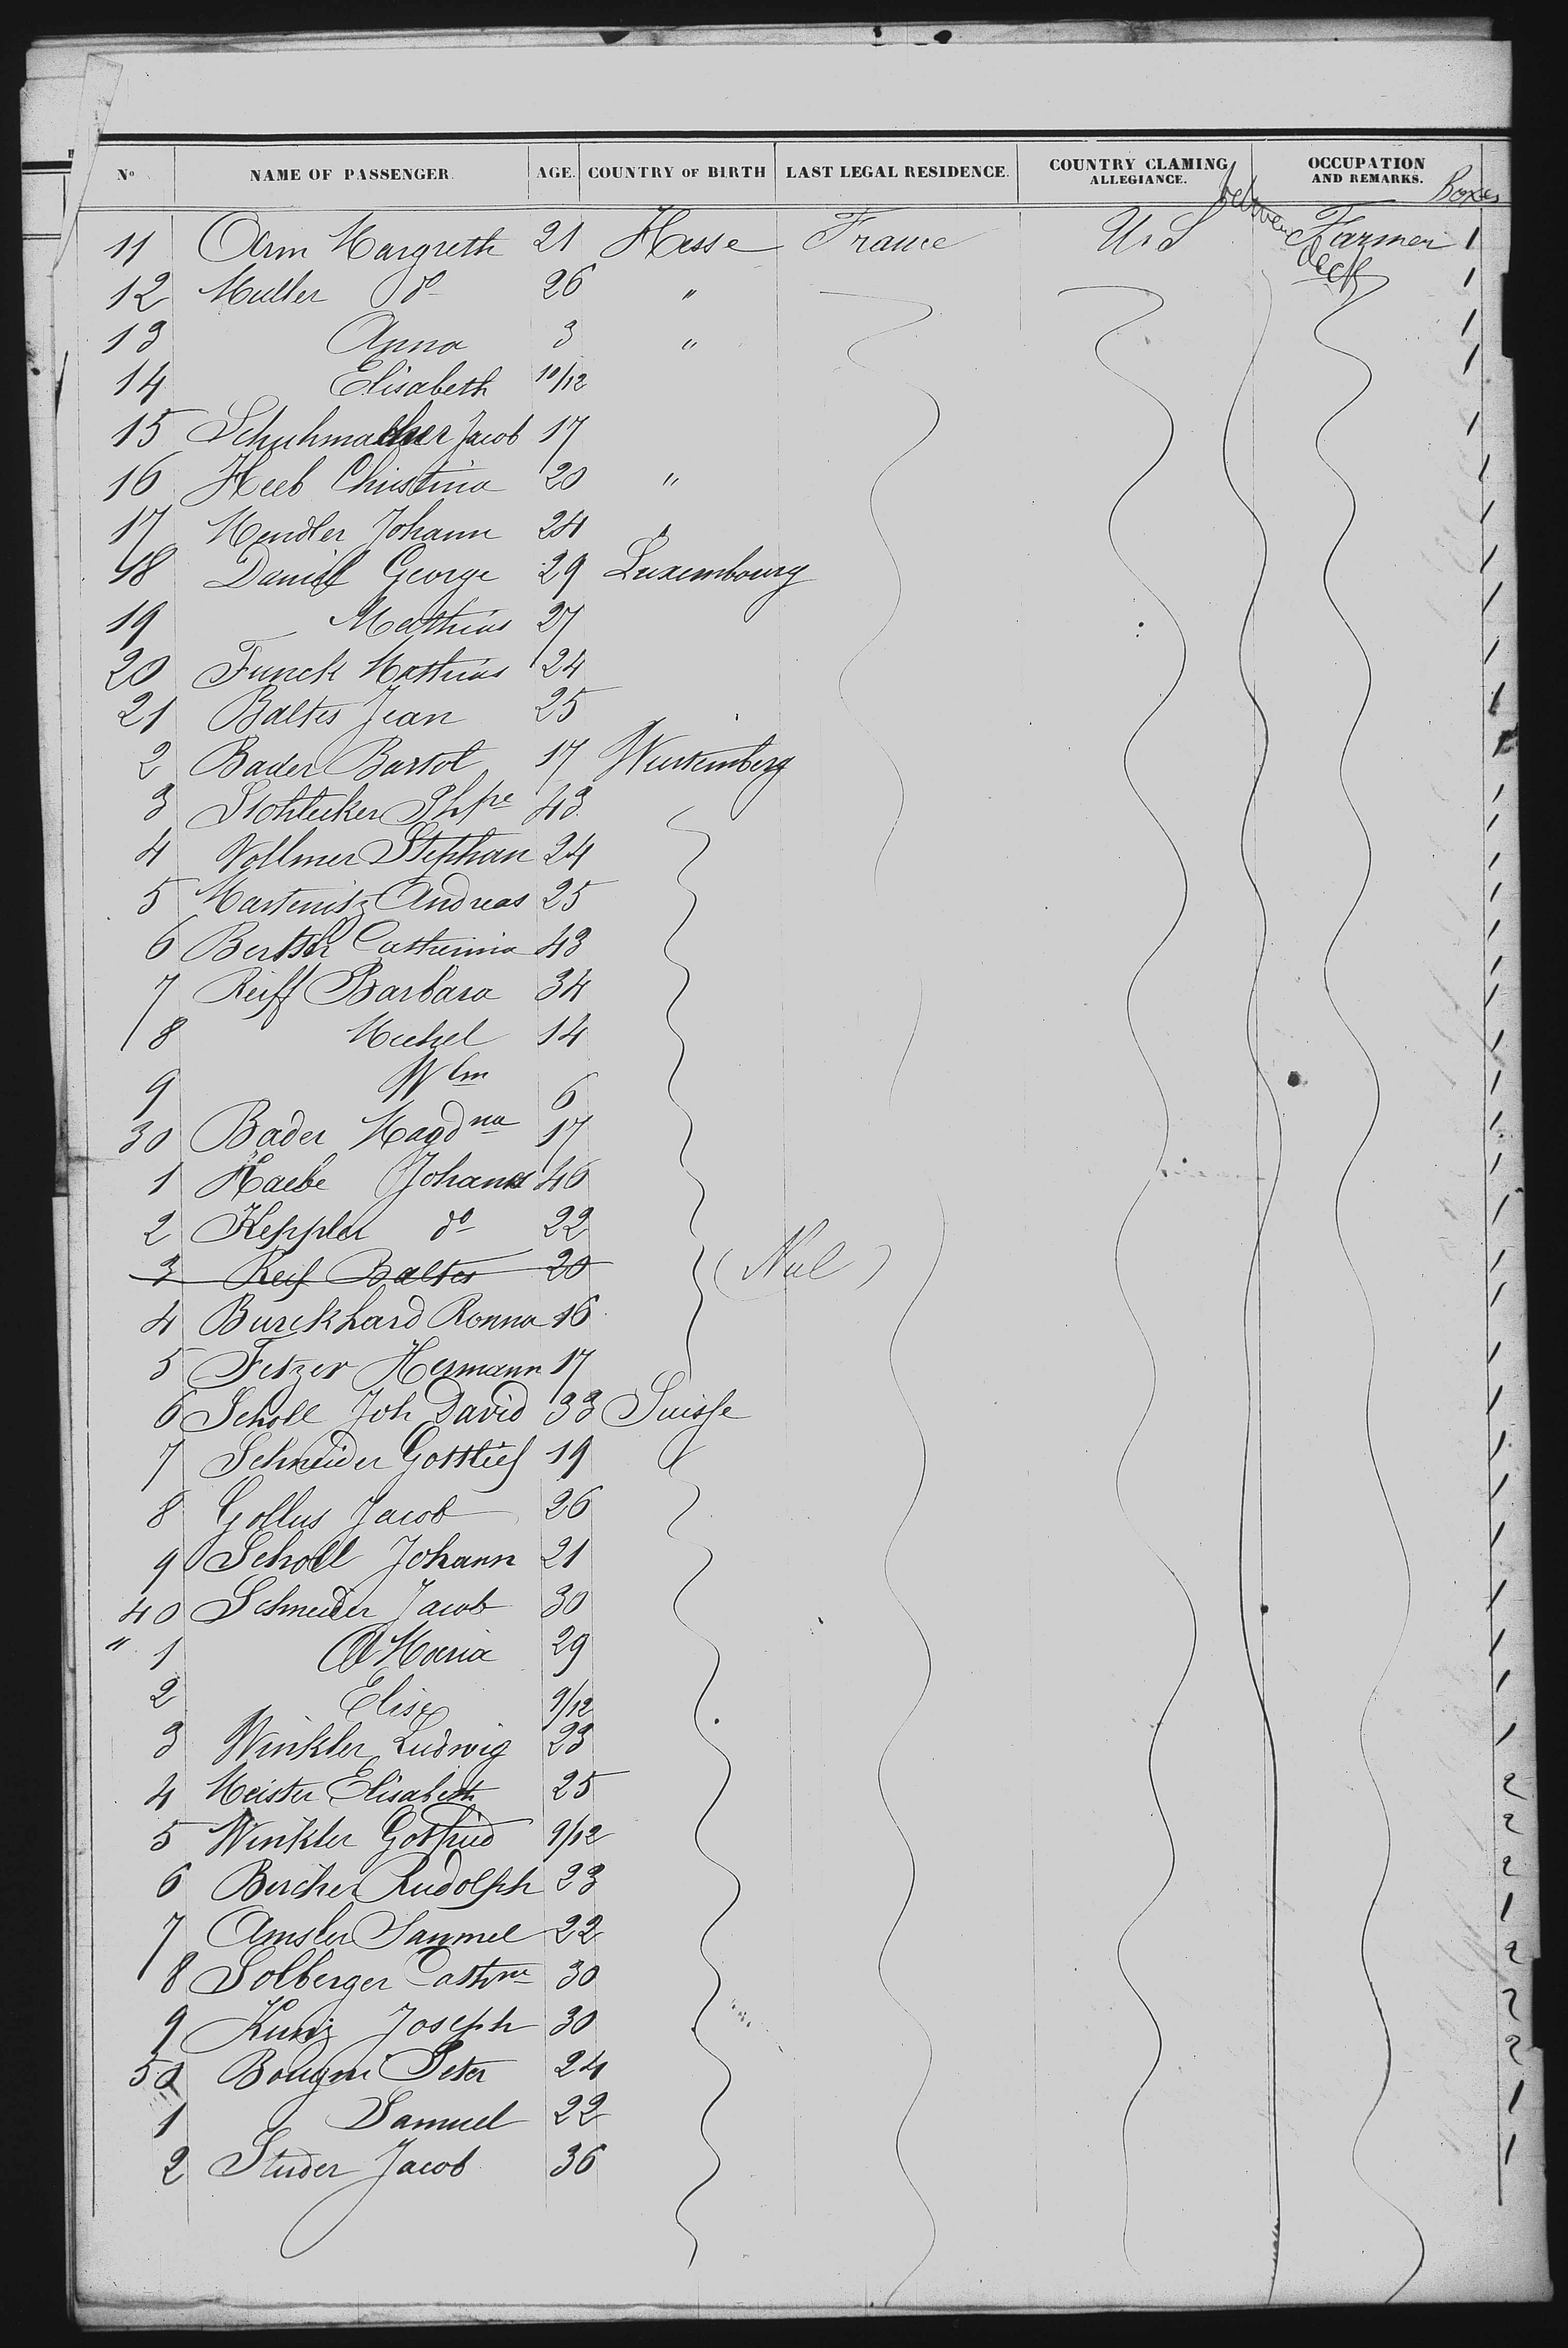 No NAME OF PASSENGER. AGE. COUNTRY OF BIRTH LAST LEGAL RESIDENCE. COUNTRY CLAMING ALLEGIANCE. OCCUPATION AND REMARKS. Boxes
11 Arm Margreth 21 Hesse France U.S between deck Farmer 1
12 Muller do 26 " 1
13 Anna 3 " 1
14 Elisabeth 10/12 1
15 Schuhmacher Jacob 17 1
16 Heeb Christina 20 " 1
17 Mendler Johann 24 1
18 Daniel George 29 Luxembourg 1
19 Mathias 27 1
20 Funck Mathias 24 1
21 Baltes Jean 25 1
2 Bader Bartol 17 Wurtemberg 1
3 Stohlecker Phpe 43 1
4 Vollmer Stephan 24 1
5 Martenitz Andreas 25 1
6 Bertsch Catherina 43 1
7 Reiff Barbara 34 1
8 Michel 14 1
9 Wlm 6 1
30 Bader Magdna 17 1
1 Haebe Johann 46 1
2 Keppler do 22 1
3 Reif Baltes 20 (Nul) 1
4 Burckhard Ronna 16 1
5 Fetzer Hermann 17 1
6 Scholl Joh David 33 Suisse 1
7 Schneider Gottlieb 19 1
8 Gollus Jacob 26 1
9 Scholl Johann 21 1
40 Schneider Jacob 30 1
" 1 A Maria 29 1
2 Elise 9/12 1
3 Winkler Ludwig 23 1
4 Meister Elisabeth 25 2
5 Winkler Gotfried 9/12 2
6 Bircher Rudolph 23 2
7 Amsler Samuel 22 1
8 Solberger Cathne 30 2
9 Kunz Joseph 30 2
50 Bougni Peter 24 2
1 Samuel 22 1
2 Studer Jacob 36 1